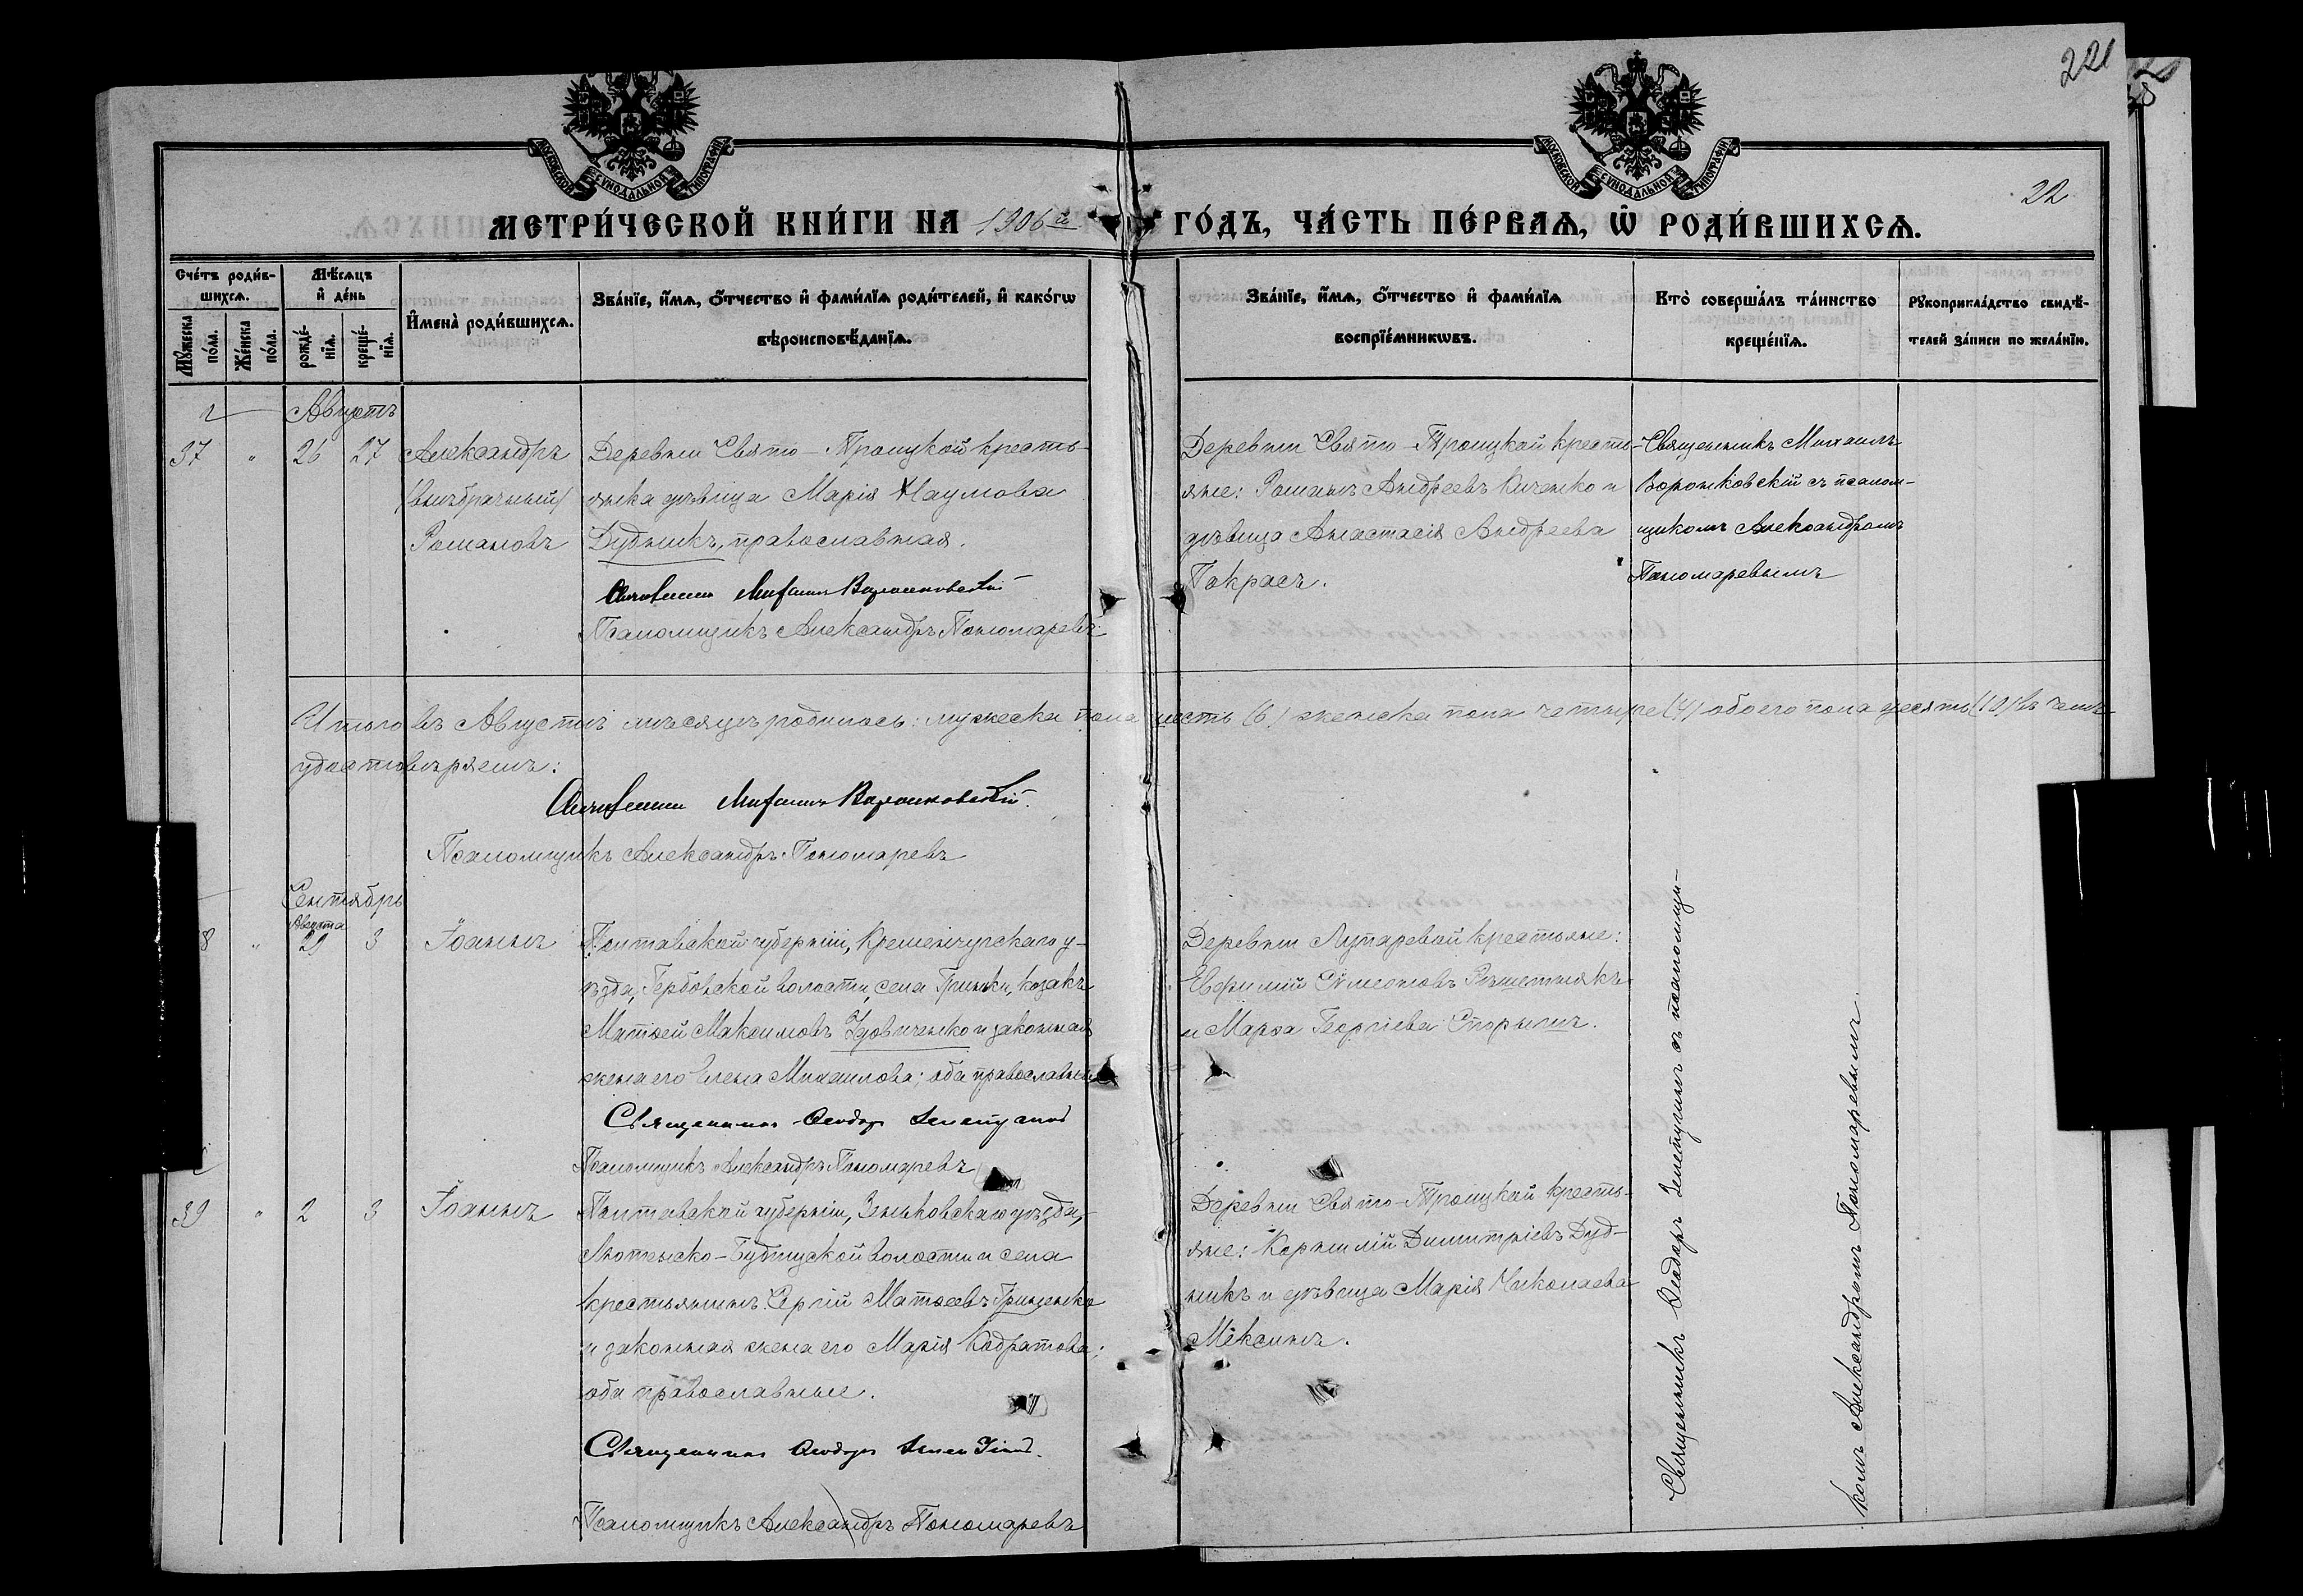 221
22
МОСКОВСКОЙ СѴНОДАЛЬНОЙ ТИПОГРАФІИ
МОСКОВСКОЙ СѴНОДАЛЬНОЙ ТИПОГРАФІИ
МЕТРИ́ЧЕСКОЙ КНИ́ГИ НА 1906й ГО́ДЪ, ЧА́СТЬ ПЕ́РВАѦ, Ѡ҆ РОДИ́ВШИХСѦ.
Сче́тъ роди́в-
шихсѧ.
Мѣ́сѧцъ
и҆ де́нь
Мꙋ́жеска по́ла.
Же́нска по́ла.
рожде́-
нїѧ.
креще́-
нїѧ.
И҆мена̀ роди́вшихсѧ.
Зва́нїе, и҆́мѧ, ѻ҆́тчество и҆ фами́лїѧ роди́телей, и҆ како́гѡ
вѣроисповѣ́данїѧ.
Зва́нїе, и҆́мѧ, ѻ҆́тчество и҆ фами́лїѧ
воспрїе́мникѡвъ.
Кто̀ соверша́лъ та́инство
креще́нїѧ.
Рꙋкоприкла́дство свидѣ́-
телей за́писи по жела́нїю.
Августъ
37 " 26 27 Александръ
(внѣбрачный)
Романовъ
Деревни Свято-Троицкой кресть-
янка дѣвица Марія Наумова
Дудникъ, православная.
Священникъ Михаилъ Воронковскій
Псаломщикъ Александръ Пономаревъ
Деревни Свято-Троицкой кресть-
яне: Романъ Андреевъ Киченко и
дѣвица Анастасія Андреева
Покрасъ.
Священникъ Михаилъ
Воронковскій съ псалом-
щикомъ Александромъ
Пономаревымъ
Итого въ Августѣ мѣсяцѣ родилось: мужеска пола шесть (6) женска пола четыре (4) обоего пола десять (10) въ чемъ
удостовѣряемъ:
Священникъ Михаилъ Воронковскій.
Псаломщикъ Александръ Пономаревъ
Сентябрь
Августа
8 " 29 3 Іоаннъ
Полтавской губерніи, Кременчугскаго у-
ѣзда, Гербовской волости, села Гриньки, козакъ
Матѳей Максимовъ Удовиченко и законная
жена его Елена Михаилова; оба православные
Священникъ Ѳеодоръ
Псаломщикъ Александръ Пономаревъ
Деревни Лутаревой крестьяне:
Евфимій Симеоновъ Рѣшетнякъ
и Марѳа Георгіева
Священникъ Ѳеодоръ съ псаломщи-
комъ Александромъ Пономаревымъ
39 " 2 3 Іоаннъ
Полтавской губерніи, Зеньковскаго уѣзда,
Лютенско-Будищской волости и села
крестьянинъ Сергій Матѳеевъ Гриценко
и законная жена его Марія Кодратова;
оба православные.
Священникъ Ѳеодоръ
Псаломщикъ Александръ Пономаревъ
Деревни Свято-Троицкой кресть-
яне: Корнилій Димитріевъ Дуд-
никъ и дѣвица Марія Николаева